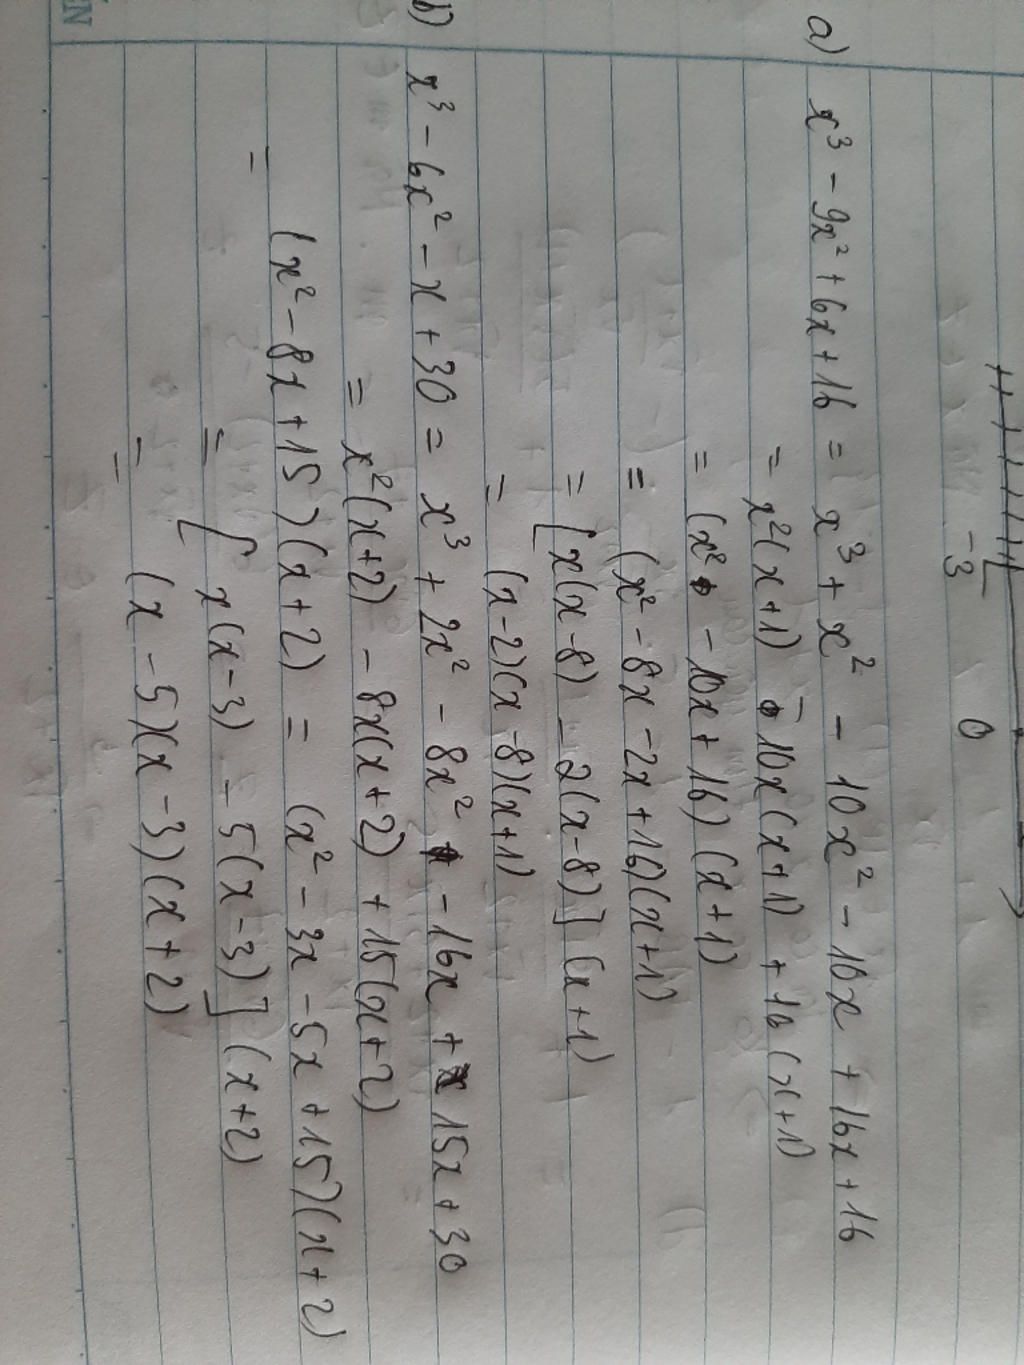 -3 0
a) x³ - 9x² + 6x + 16 = x³ + x² - 10x² - 10x + 16x + 16
= x²(x+1) - 10x(x+1) + 16(x+1)
= (x² - 10x + 16)(x+1)
= (x² - 8x - 2x + 16)(x+1)
= [x(x-8) - 2(x-8)](x+1)
= (x-2)(x-8)(x+1)
b) x³ - 6x² - x + 30 = x³ + 2x² - 8x² - 16x + 15x + 30
= x²(x+2) - 8x(x+2) + 15(x+2)
= (x² - 8x + 15)(x+2) = (x² - 3x - 5x + 15)(x+2)
= [x(x-3) - 5(x-3)](x+2)
= (x-5)(x-3)(x+2)